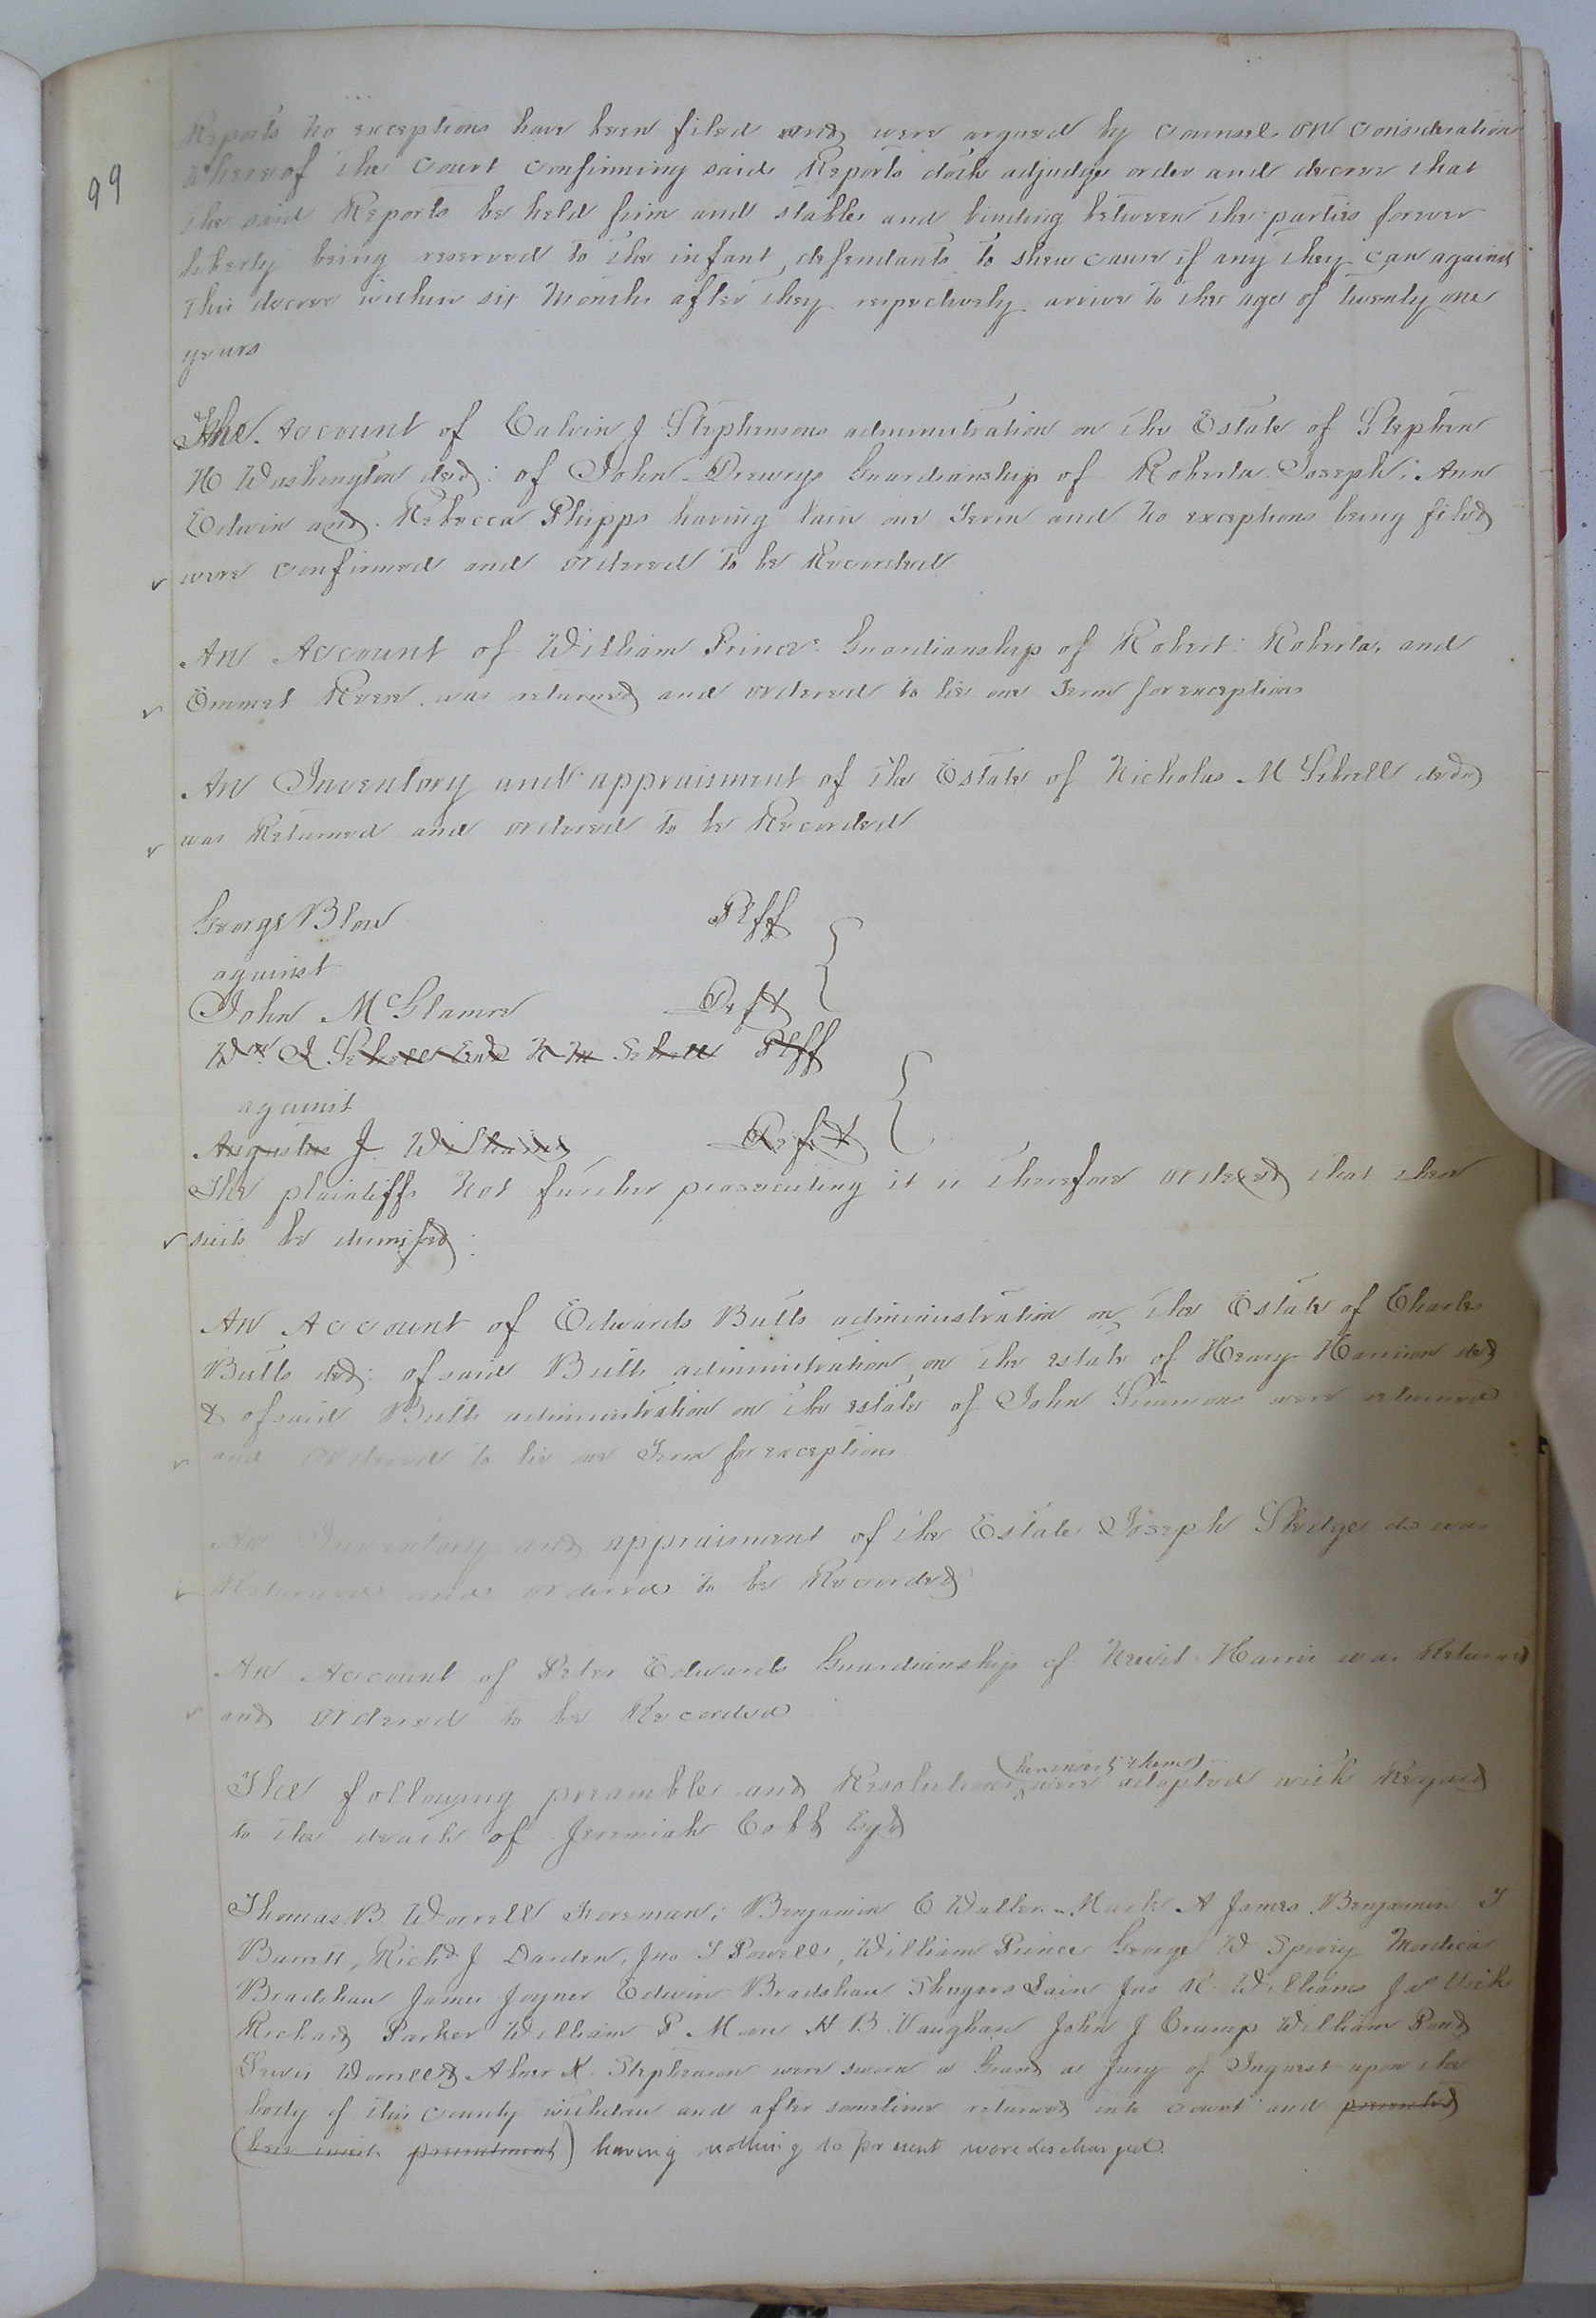 99
Reports no exceptions have been filed and were argued by counsel on consideration
whereof the Court confirming said Reports doth adjudge order and decree that
the said Reports be held firm and stable and binding between the parties forever
liberty being reserved to the infant defendants to shew cause if any they can against
this decree within six months after they respectively arrive to the age of twenty one
years
The Account of Calvin J Stephensons administration on the Estate of Stephen
H Washington decd: of John Drewrys Guardianship of Roberta Joseph: Ann
Edwin and Rebecca Phipps having lain one Term and no exceptions being filed
were confirmed and ordered to be Recorded
An Account of William Princes Guardianship of Robert: Roberta, and
Emmet Reese was returned and ordered to lie one Term for exceptions
An Inventory and appraisment of the Estate of Nicholas M Sebrell decd
was Returned and ordered to be Recorded
George Blow Plff
against
John McGlamre Deft
Wm J Sebrell Exr N M Sebrell Plff
against
Augustus J Williams Deft
The plaintiffs not further prosecuting it is therefore ordered that their
suits be dismissed:
An Account of Edwards Butts administration on the Estate of Charles
Butts decd: of said Butts administration on the estate of Henry Harrison decd
& of said Butts administration on the estate of John Simmons were returned
and ordered to lie one Term for exceptions
An Inventory and appraisment of the Estate Joseph Sledge dc was
Returned and ordered to be Recorded
An Account of Peter Edwards Guardianship of Newit Harris was Returned
and ordered to be Recorded
(here insert them)
The following preamble and Resolutions were adopted with Regard
to the death of Jeremiah Cobb Esqr
Thomas B. Worrell Foreman; Benjamin E Waller Mark A James Benjamin T
Barrett, Richd J Darden, Jno T Powell, William Prince George W Spivey
Bradshaw James Joyner Edwin Bradshaw Lain Jno R Williams Ja Vick
Richard Parker William P Moore H B Vaughan John J Crump William Pond
Lewis Worrell & Abner K Stephenson were sworn a Grand a Jury of Inquest upon the
body of this County withdrew and after sometime returned into Court and presented
(here insert presentment) having nothing to present were discharged.